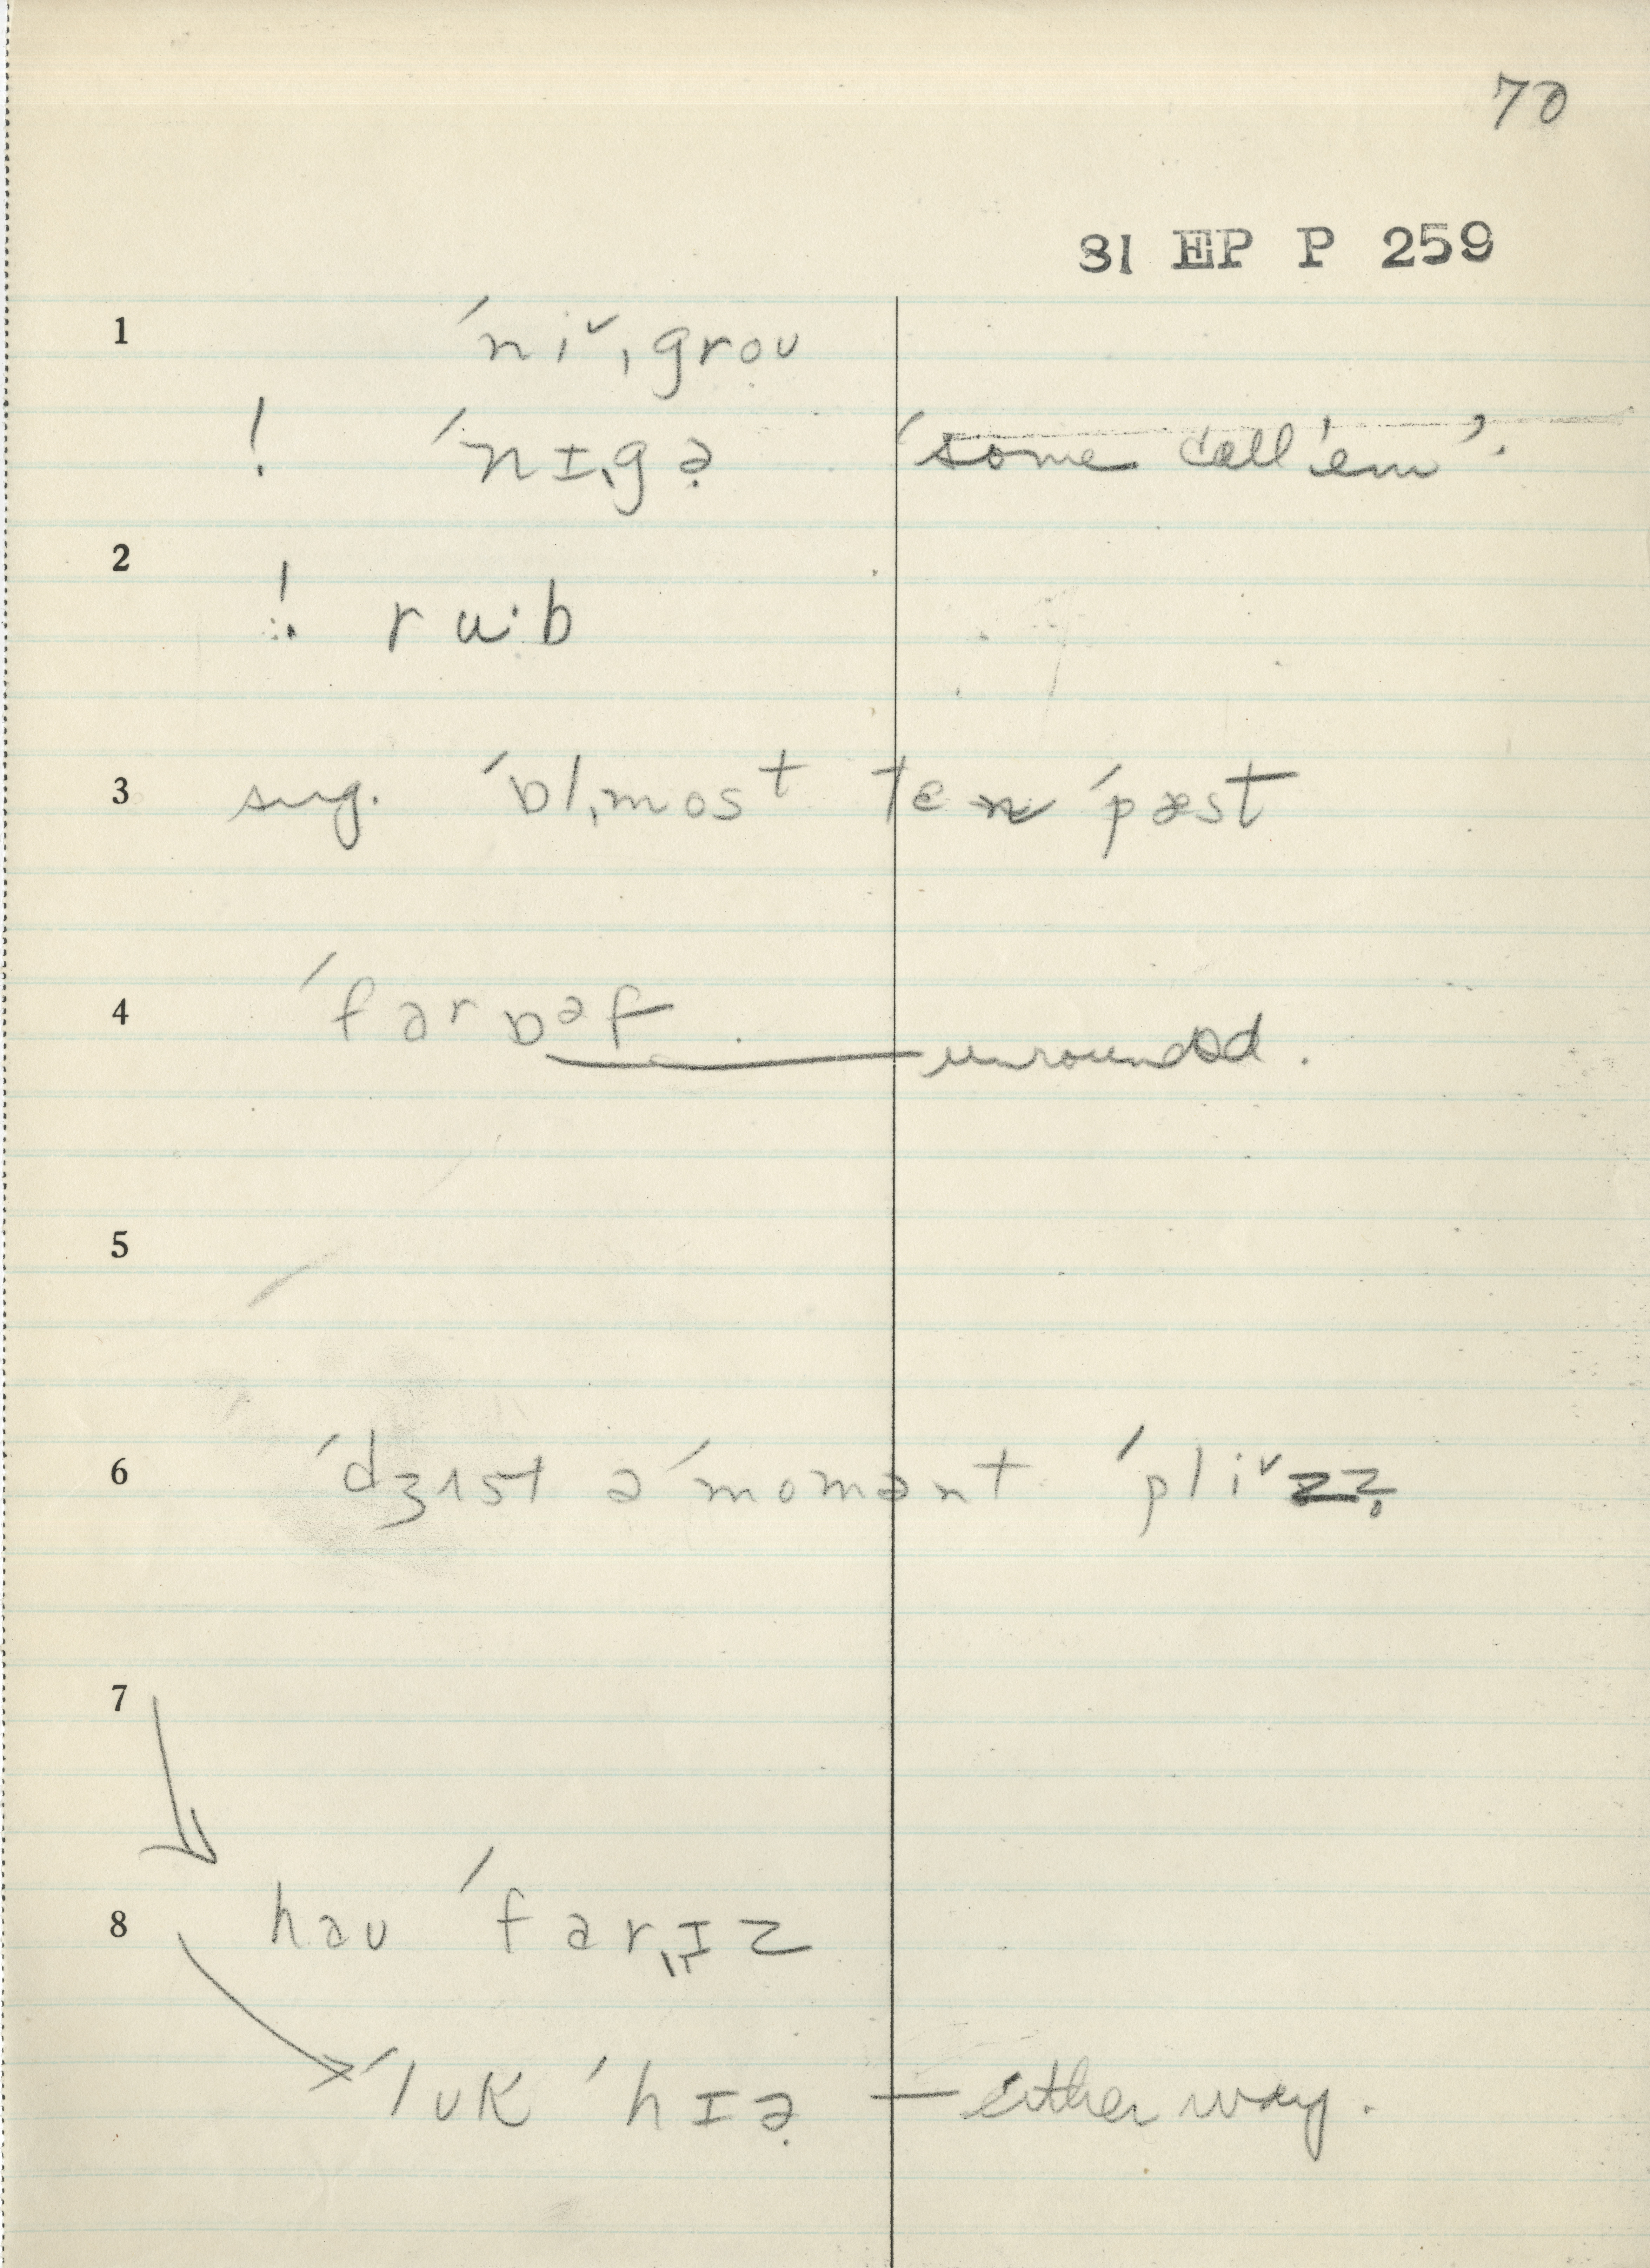 70
81 EP P 259
1 ˈniˇˌgrou
! ˈnɪˌgə̣ ‘some call 'em’.
2
! ru·b
3 sug. ˈɒlˌmost ten ˈpæst
4 ˈfarɒᵊf unrounded.
5
6 ˈdʒʌst ə ˈmomənt ˈpliˇzz̥
7
8 hau ˈfarˌˌɪz
ˈlʊk ˈhɪə̣ — either way.